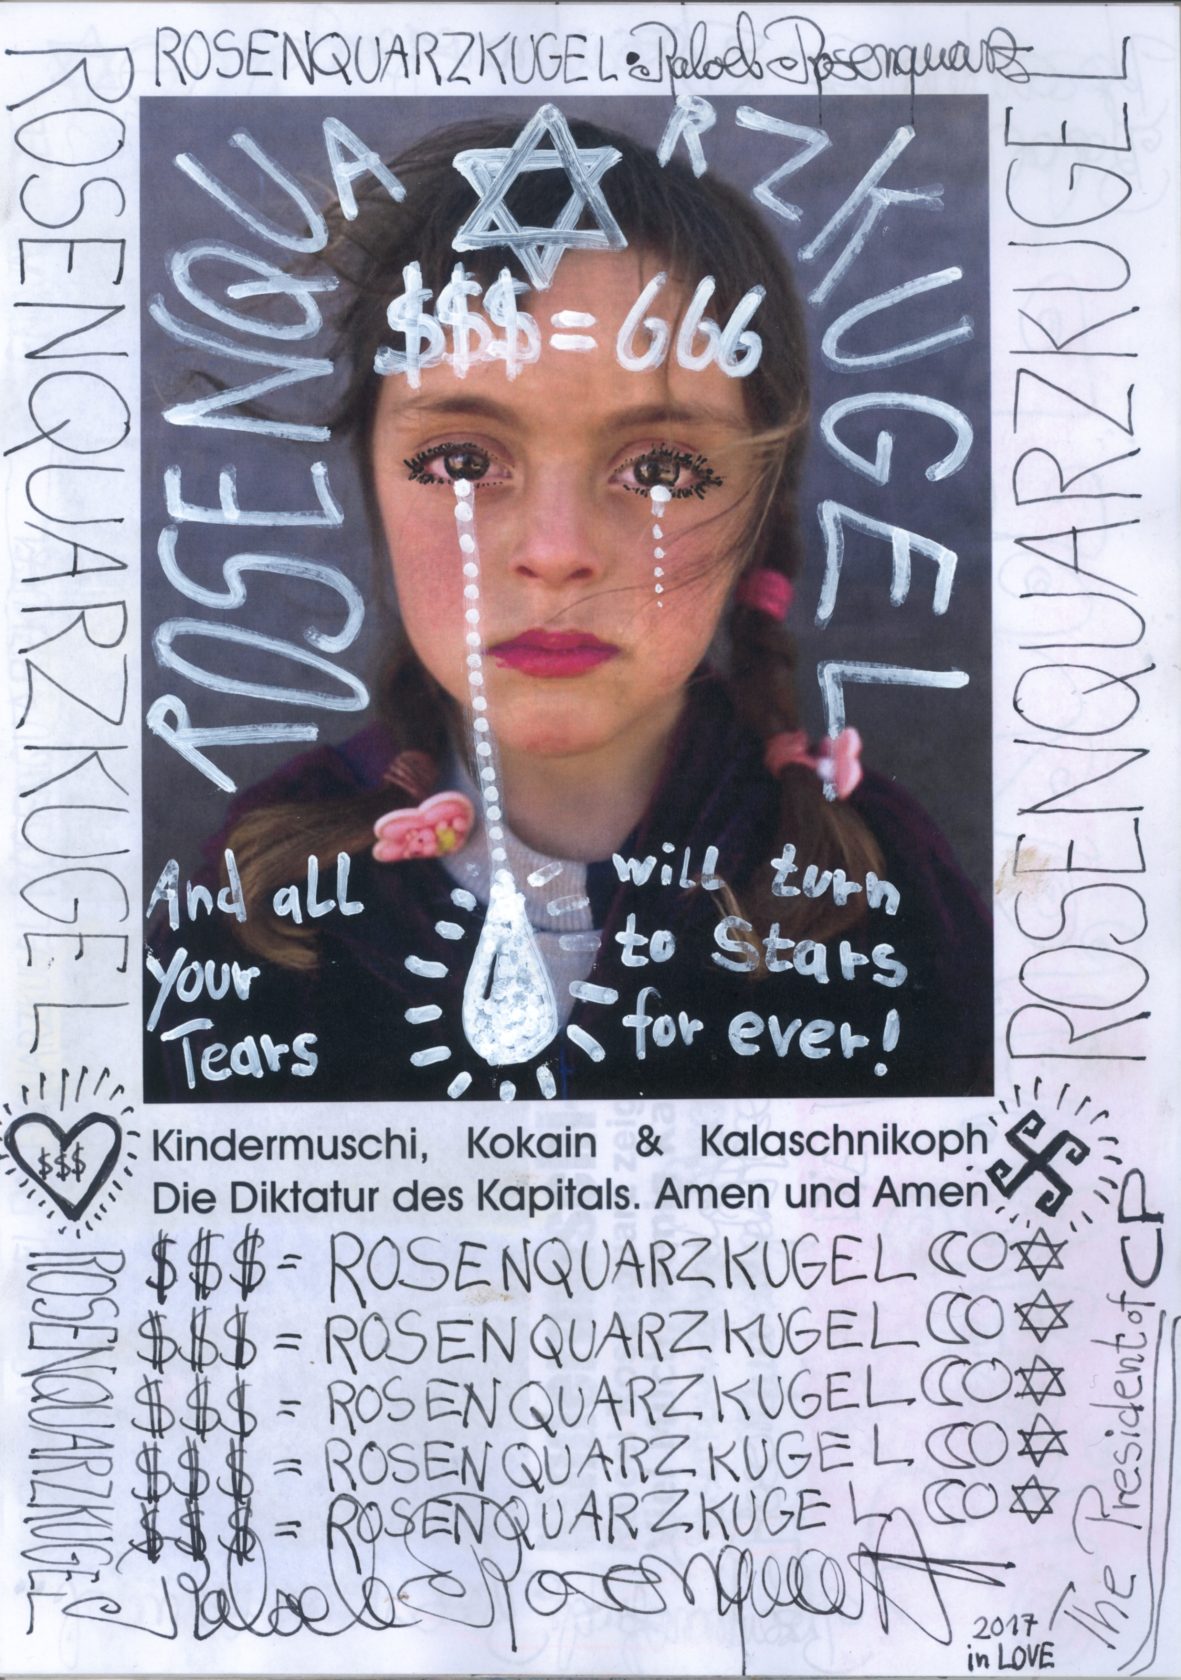 ROSENQUARZKUGEL: Rosenquarz
ROSENQUARZKUGEL
ROSENQUARZKUGEL
ROSENQUARZKUGEL
$$$ = 666
And all
your
Tears
will turn
to Stars
for ever!
$$$
Kindermuschi, Kokain & Kalaschnikoph
Die Diktatur des Kapitals. Amen und Amen
$$$ = ROSENQUARZKUGEL
$$$ = ROSENQUARZKUGEL
$$$ = ROSENQUARZKUGEL
$$$ = ROSENQUARZKUGEL
$$$ = ROSENQUARZKUGEL
ROSENQUARZKUGEL
The President of CP
Rosenquarz
2017
in LOVE